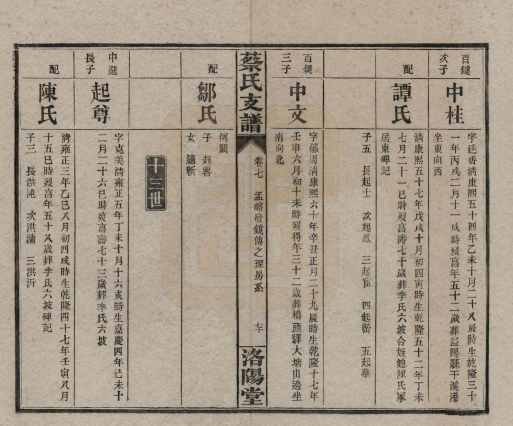 百鍵
次子
中桂
字廷香清康熙五十四年乙未十月二十八辰時生乾隆三十
一年丙戌二月十一戌時歿享年五十二歲葬益陽縣干溪港
坐東向西
配
譚氏
清康熙五十七年戊戌十月初四寅時生乾隆五十二年丁未
七月二十一巳時歿享壽七十歲葬李氏六坡合姪媳陳氏冢
居東碑記
子五 長起士 次起鳳 三起 四起 五起華
百鍵
三子
中文
字郁周清康熙六十年辛丑正月二十九辰時生乾隆十七年
壬申六月初十未時歿得年三十二歲葬橋頭驛大塘山邊坐
南向北
蔡氏支譜
卷七
孟 發鏡傳之琛房系
洛陽堂
配
鄒氏
何闕
子 起畧
女 適靳
十三世
中選
長子
起尊
字克美清雍正五年丁未十月十六亥時生嘉慶四年己未十
二月二十六巳時歿享壽七十三歲葬李氏六坡
配
陳氏
清雍正三年乙巳八月初四戌時生乾隆四十七年壬寅八月
十五巳時歿享年五十八歲葬李氏六坡碑記
子三 長洪 次洪浦 三洪沂